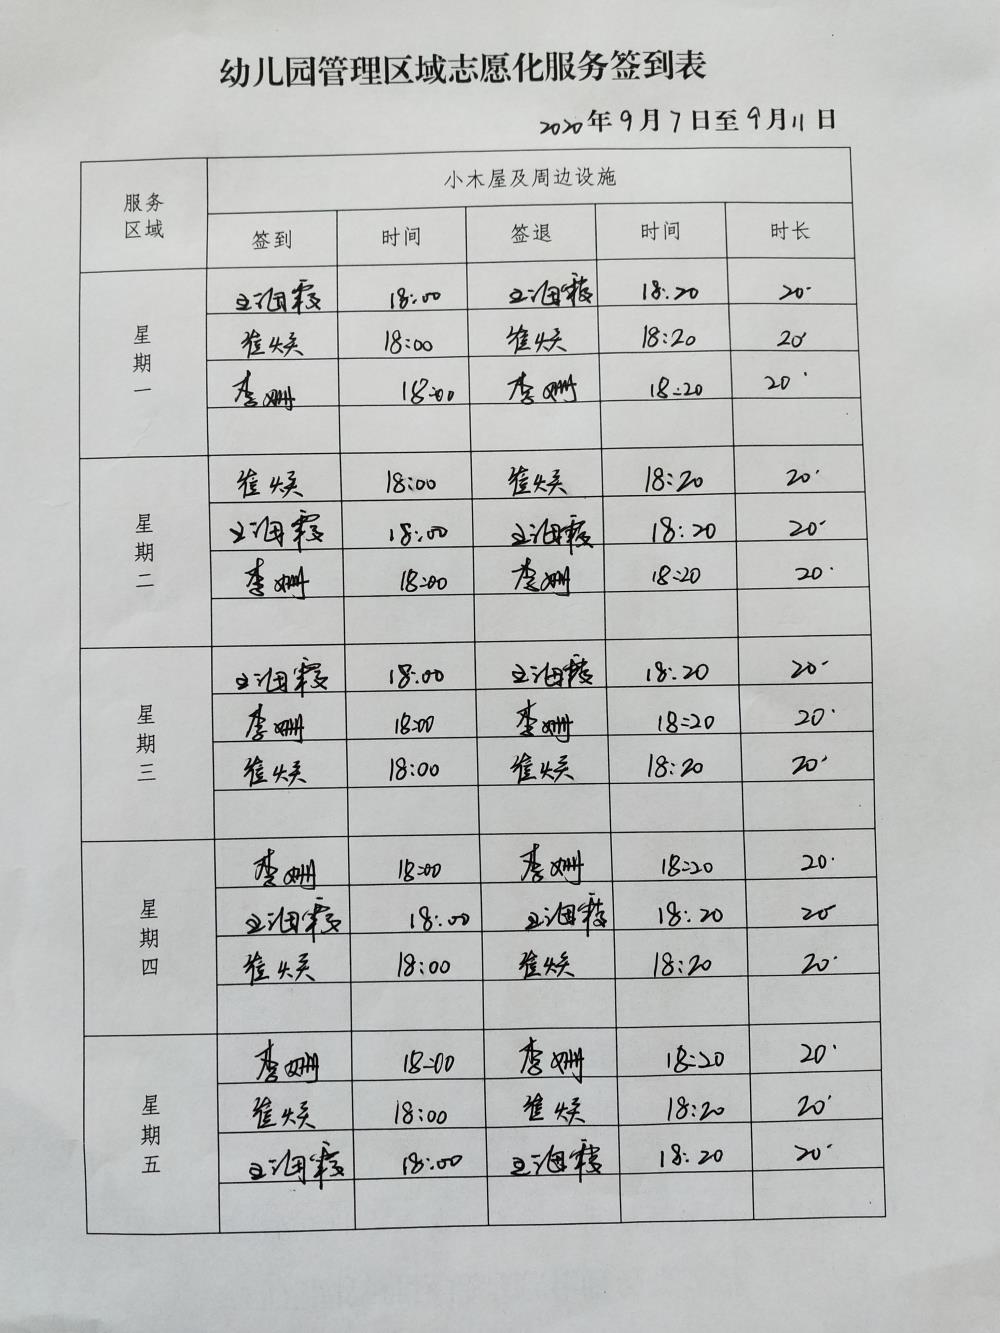 幼儿园管理区域志愿化服务签到表
2020年9月7日至9月11日
服务区域 小木屋及周边设施
签到 时间 签退 时间 时长
星期一
王海霞 18:00 王海霞 18:20 20'
崔焕 18:00 崔焕 18:20 20'
李姗 18:00 李姗 18:20 20'
星期二
崔焕 18:00 崔焕 18:20 20'
王海霞 18:00 王海霞 18:20 20'
李姗 18:00 李姗 18:20 20'
星期三
王海霞 18:00 王海霞 18:20 20'
李姗 18:00 李姗 18:20 20'
崔焕 18:00 崔焕 18:20 20'
星期四
李姗 18:00 李姗 18:20 20'
王海霞 18:00 王海霞 18:20 20'
崔焕 18:00 崔焕 18:20 20'
星期五
李姗 18:00 李姗 18:20 20'
崔焕 18:00 崔焕 18:20 20'
王海霞 18:00 王海霞 18:20 20'